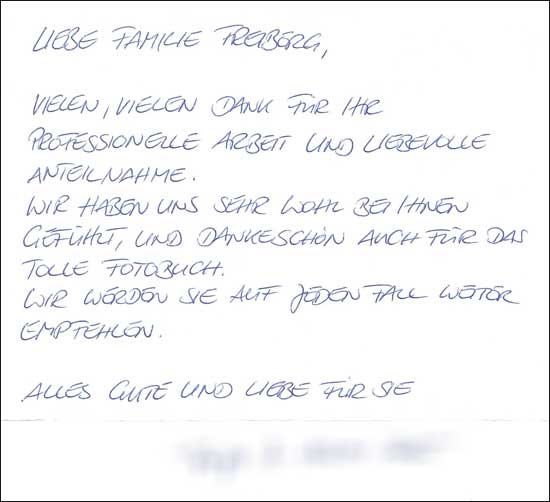 LIEBE FAMILIE FREIBERG,
VIELEN, VIELEN DANK FÜR IHR
PROFESSIONELLE ARBEIT UND LIEBEVOLLE
ANTEILNAHME.
WIR HABEN UNS SEHR WOHL BEI IHNEN
GEFÜHLT, UND DANKESCHÖN AUCH FÜR DAS
TOLLE FOTOBUCH.
WIR WERDEN SIE AUF JEDEN FALL WEITER
EMPFEHLEN.
ALLES GUTE UND LIEBE FÜR SIE